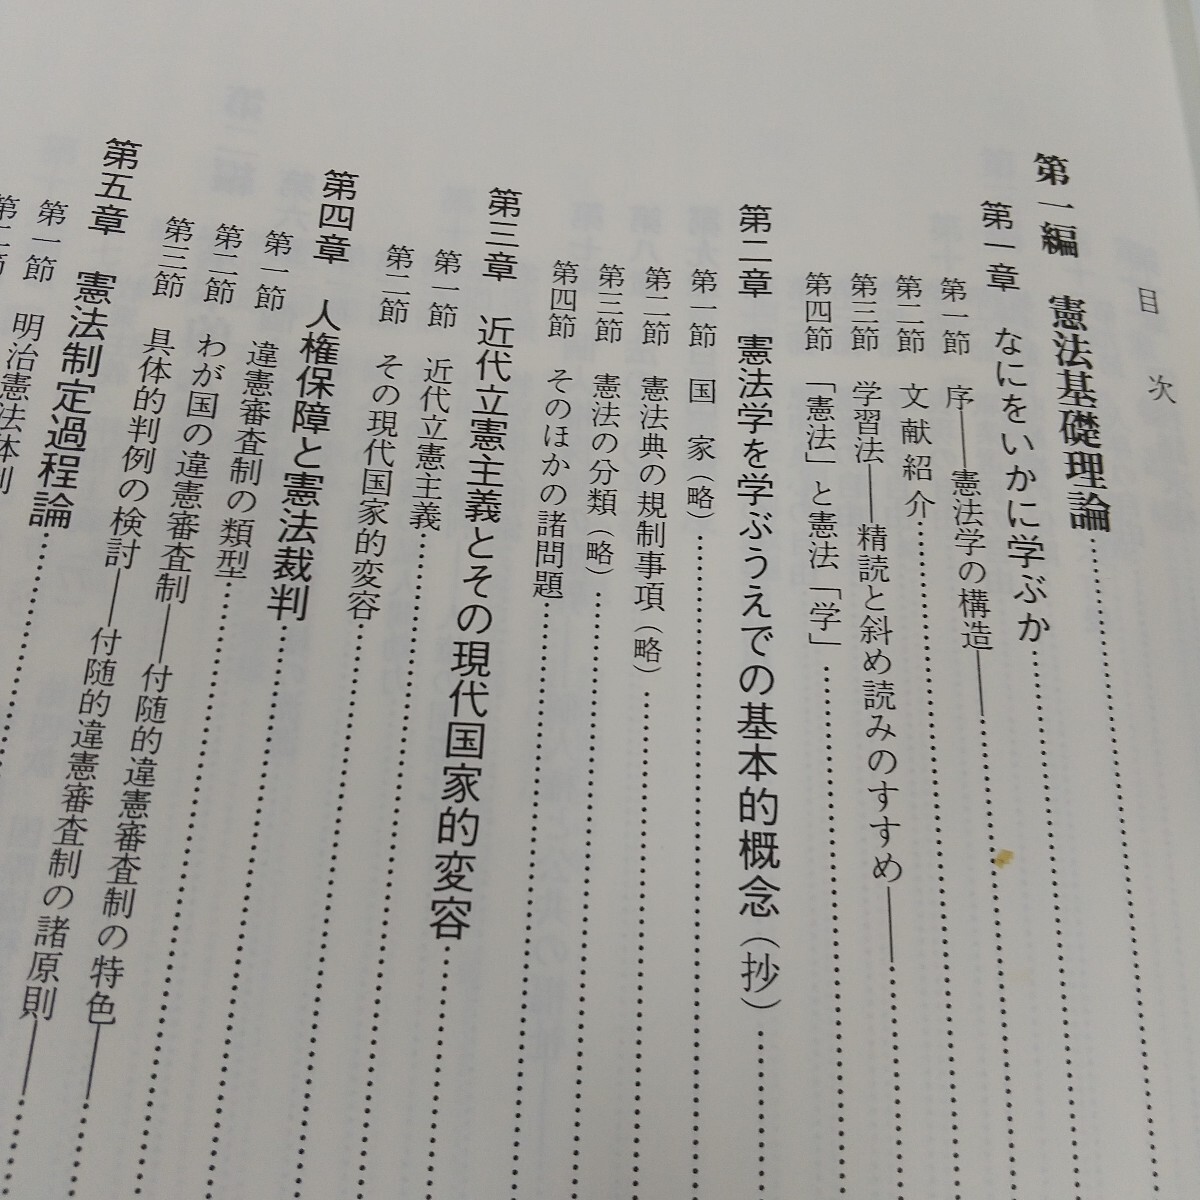 目次
第一編 憲法基礎理論……
第一章 なにをいかに学ぶか……
第一節 序――憲法学の構造――……
第二節 文献紹介……
第三節 学習法――精読と斜め読みのすすめ――……
第四節 「憲法」と憲法「学」……
第二章 憲法学を学ぶうえでの基本的概念(抄)……
第一節 国家(略)……
第二節 憲法典の規制事項(略)……
第三節 憲法の分類(略)……
第四節 そのほかの諸問題……
第三章 近代立憲主義とその現代国家的変容……
第一節 近代立憲主義……
第二節 その現代国家的変容……
第四章 人権保障と憲法裁判……
第一節 違憲審査制の類型……
第二節 わが国の違憲審査制――付随的違憲審査制の特色――……
第三節 具体的判例の検討――付随的違憲審査制の諸原則――……
第五章 憲法制定過程論……
第一節 明治憲法体制
第二節